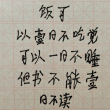 饭可
以壹日不吃觉
可以一日不睡
但书不能壹
日不读